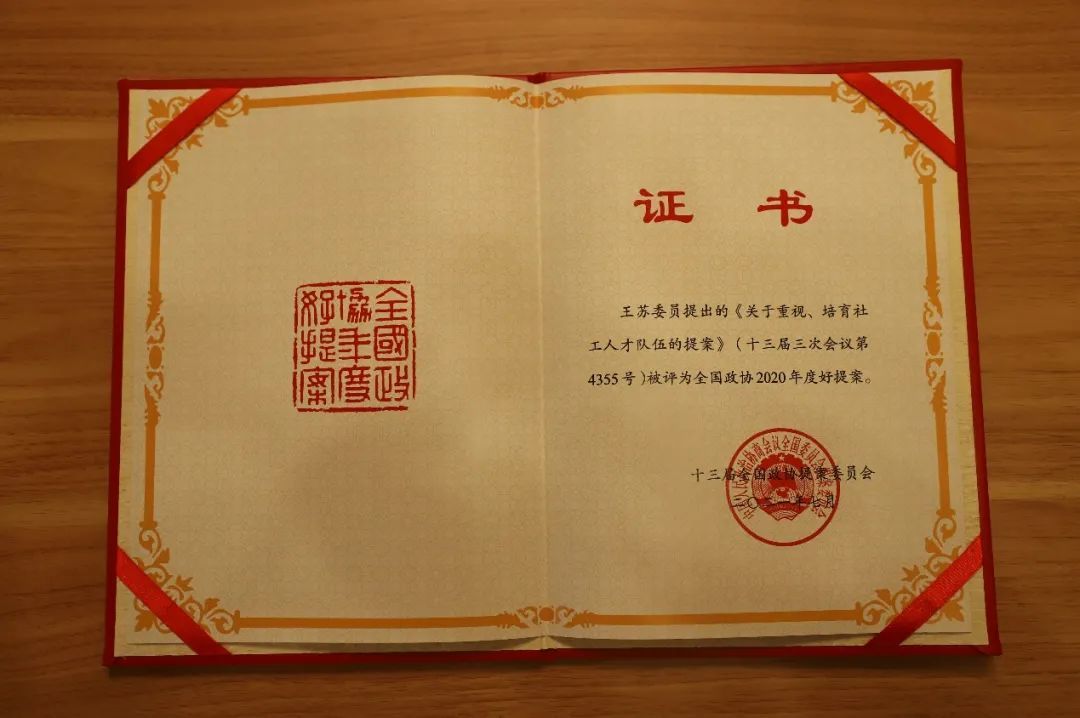 全國政
協年度
好提案
证书
王苏委员提出的《关于重视、培育社
工人才队伍的提案》(十三届三次会议第
4355号)被评为全国政协2020年度好提案。
十三届全国政协提案委员会
二〇二一年七月